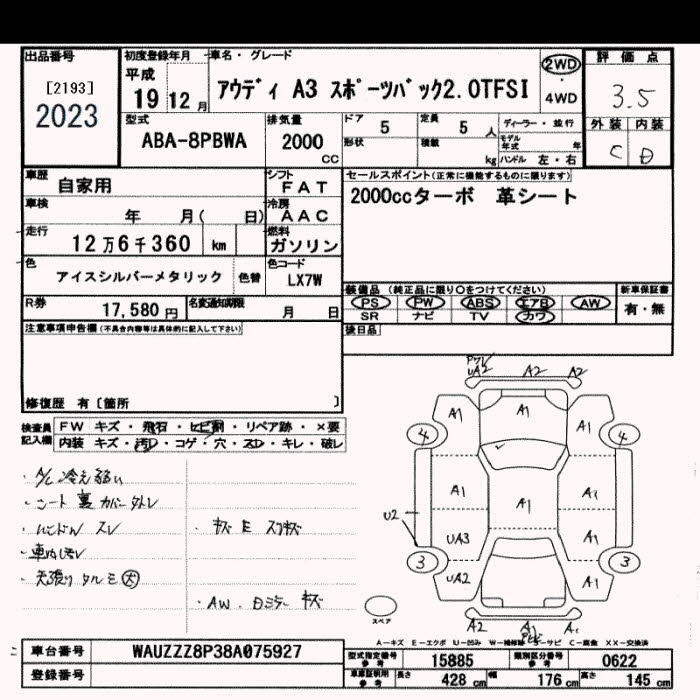 出品番号
[2193]
2023
初度登録年月
平成
19 12月
車名・グレード
アウディ A3 スポーツバック2.0TFSI
2WD
・
4WD
評価点
3.5
外装 内装
C D
型式
ABA-8PBWA
排気量
2000
CC
ドア
5
定員
5 人
ディーラー・並行
形状
積載
kg
モデル年式
年
ハンドル 左・右
車歴
自家用
シフト
FAT
車検
年 月( 日)
冷房
AAC
走行
12万6千360 km
燃料
ガソリン
色
アイスシルバーメタリック
色替
色コード
LX7W
R券
17,580円
名変通知期限
月 日
セールスポイント(正常に機能するものに限ります)
2000ccターボ 革シート
装備品 (純正品に限り○をつけてください)
新車保証書
PS PW ABS エアB AW
SR ナビ TV カワ
有・無
後日品
注意事項申告欄(不具合内容等は具体的に記入して下さい)
修復歴 有〔箇所 〕
検査員
記入欄
FW キズ・飛石・ヒビ割・リペア跡・×要
内装 キズ・汚レ・コゲ・穴・スレ・キレ・破レ
・A/C 冷え弱い
・シート裏カバー外レ
・ハンドル スレ
・車内汚レ
・天張り タルミ 大
・AW、ミラー キズ
UA2 A2 A2
A1 A1 A1
4 4
A1 A1 A1
U2
UA3 A1
3 3
UA2 A1
A2 A1 A1
スペア
A-キズ E-エクボ U-凹み W-補修跡 S-サビ C-腐食 XX-交換済
車台番号
WAUZZZ8P38A075927
登録番号
型式指定番号
参考
15885
類別区分番号
参考
0622
車庫証明用
参考
長さ 428 cm
幅 176 cm
高さ 145 cm